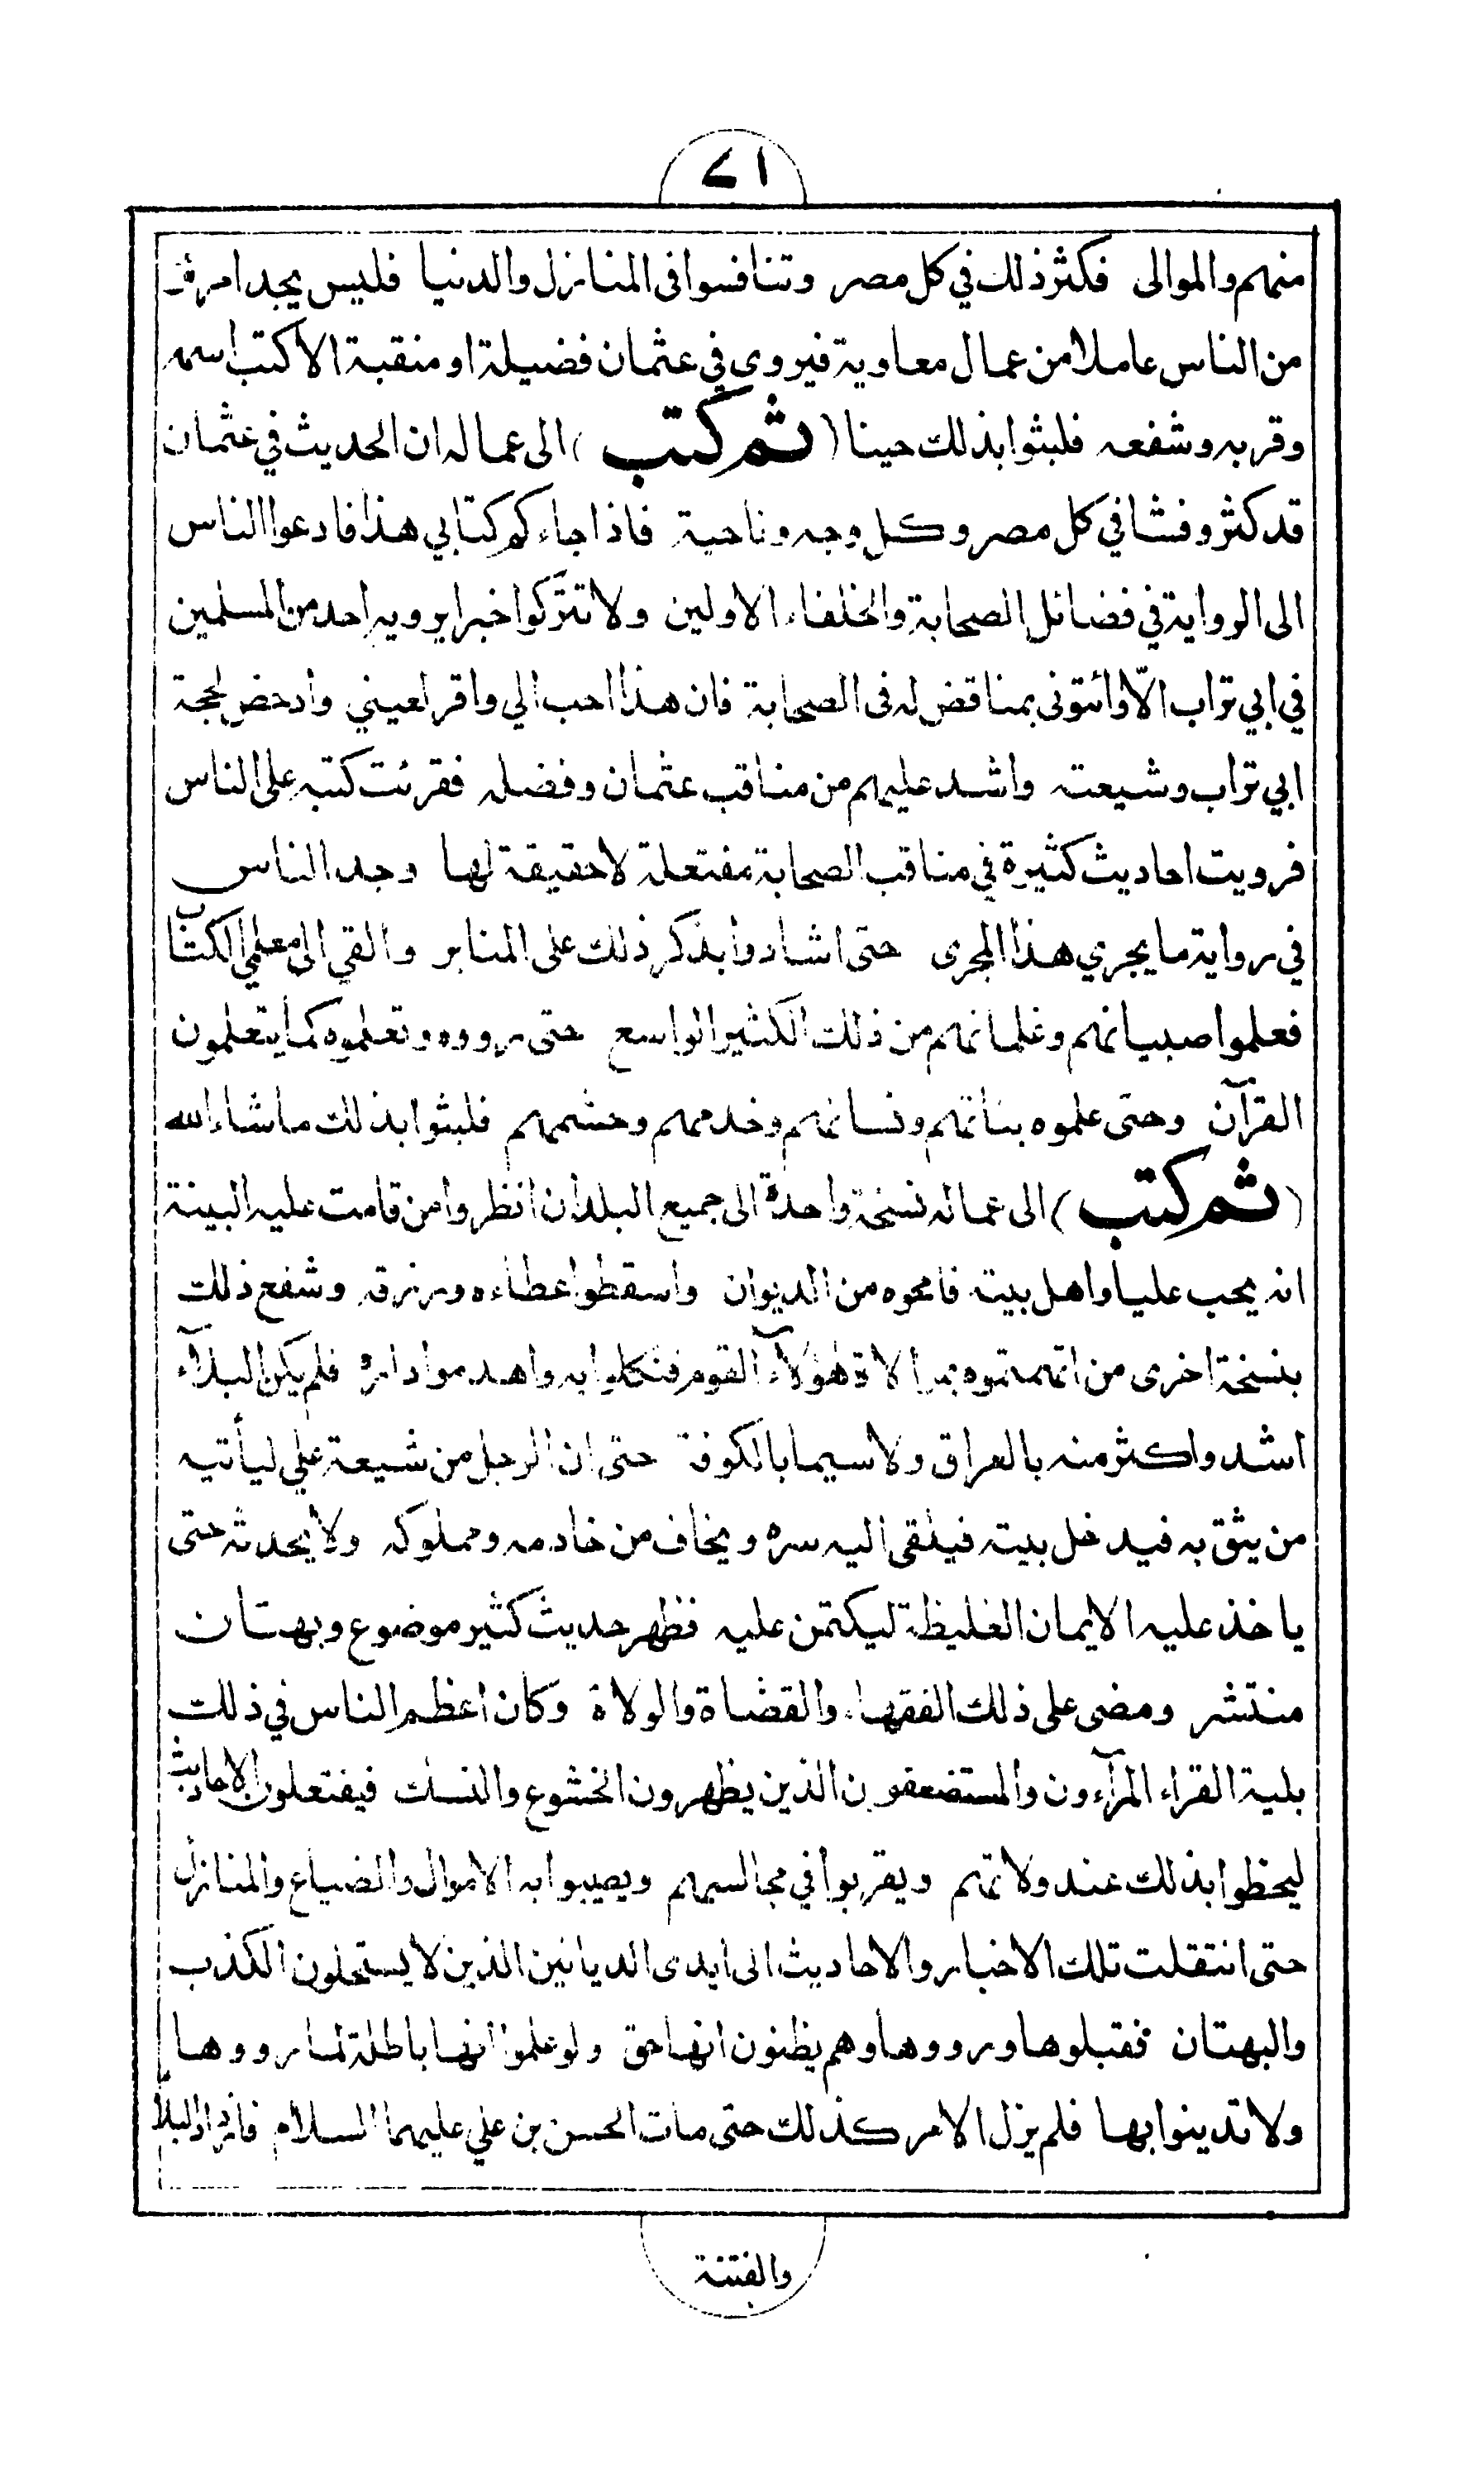 ٧١
منهم والموالى فكثر ذلك في كل مصر وتنافسوا فى المنازل والدنيا فليس يجد امرؤ
من الناس عاملا من عمال معاوية فيروى في عثمان فضيلة او منقبة الا كتب اسمه
وقربه وشفعه فلبثوا بذلك حينا (ثم كتب) الى عماله ان الحديث في عثمان
قد كثر وفشا في كل مصر وكل وجه وناحية فاذا جاءكم كتابي هذا فادعوا الناس
الى الرواية في فضائل الصحابة والخلفاء الاولين ولا تتركوا خبرا يرويه احد من المسلمين
في ابي تراب الّا وائتونى بمناقض له فى الصحابة فان هذا احب الي واقر لعيني وادحض لحجة
ابي تراب وشيعته واشد عليهم من مناقب عثمان وفضله فقرئت كتبه على الناس
فرويت احاديث كثيرة في مناقب الصحابة مفتعلة لا حقيقة لها وجد الناس
في رواية ما يجري هذا المجرى حتى اشادوا بذكر ذلك على المنابر والقي الى معلمي الكتاب
فعلموا صبيانهم وغلمانهم من ذلك الكثير الواسع حتى رووه وتعلموه كما يتعلمون
القرآن وحتى علموه بناتهم ونسائهم وخدمهم وحشمهم فلبثوا بذلك ما شاء الله
(ثم كتب) الى عماله نسخة واحدة الى جميع البلدان انظروا من قامت عليه البينة
انه يحب عليا واهل بيته فامحوه من الديوان واسقطوا عطاءه ورزقه وشفع ذلك
بنسخة اخرى من اتهمتموه بموالاة هؤلآء القوم فنكلوا به واهدموا داره فلم يكن البلآء
اشد واكثر منه بالعراق ولا سيما بالكوفة حتى ان الرجل من شيعة علي ليأتيه
من يثق به فيدخل بيته فيلقى اليه سره ويخاف من خادمه ومملوكه ولا يحدثه حتى
ياخذ عليه الايمان الغليظة ليكتمن عليه فظهر حديث كثير موضوع وبهتان
منتشر ومضى على ذلك الفقهاء والقضاة والولاة وكان اعظم الناس في ذلك
بلية القراء المرآءون والمستضعفون الذين يظهرون الخشوع والنسك فيفتعلون الاحاديث
ليحظوا بذلك عند ولاتهم ويقربوا في مجالسهم ويصيبوا به الاموال والضياع والمنازل
حتى انتقلت تلك الاخبار والاحاديث الى ايدى الديانين الذين لا يستحلون الكذب
والبهتان فقبلوها ورووها وهم يظنون انها حق ولو علموا انها باطلة لما رووها
ولا تدينوا بها فلم يزل الامر كذلك حتى مات الحسن بن علي عليهما السلام فازداد البلآء
والفتنة